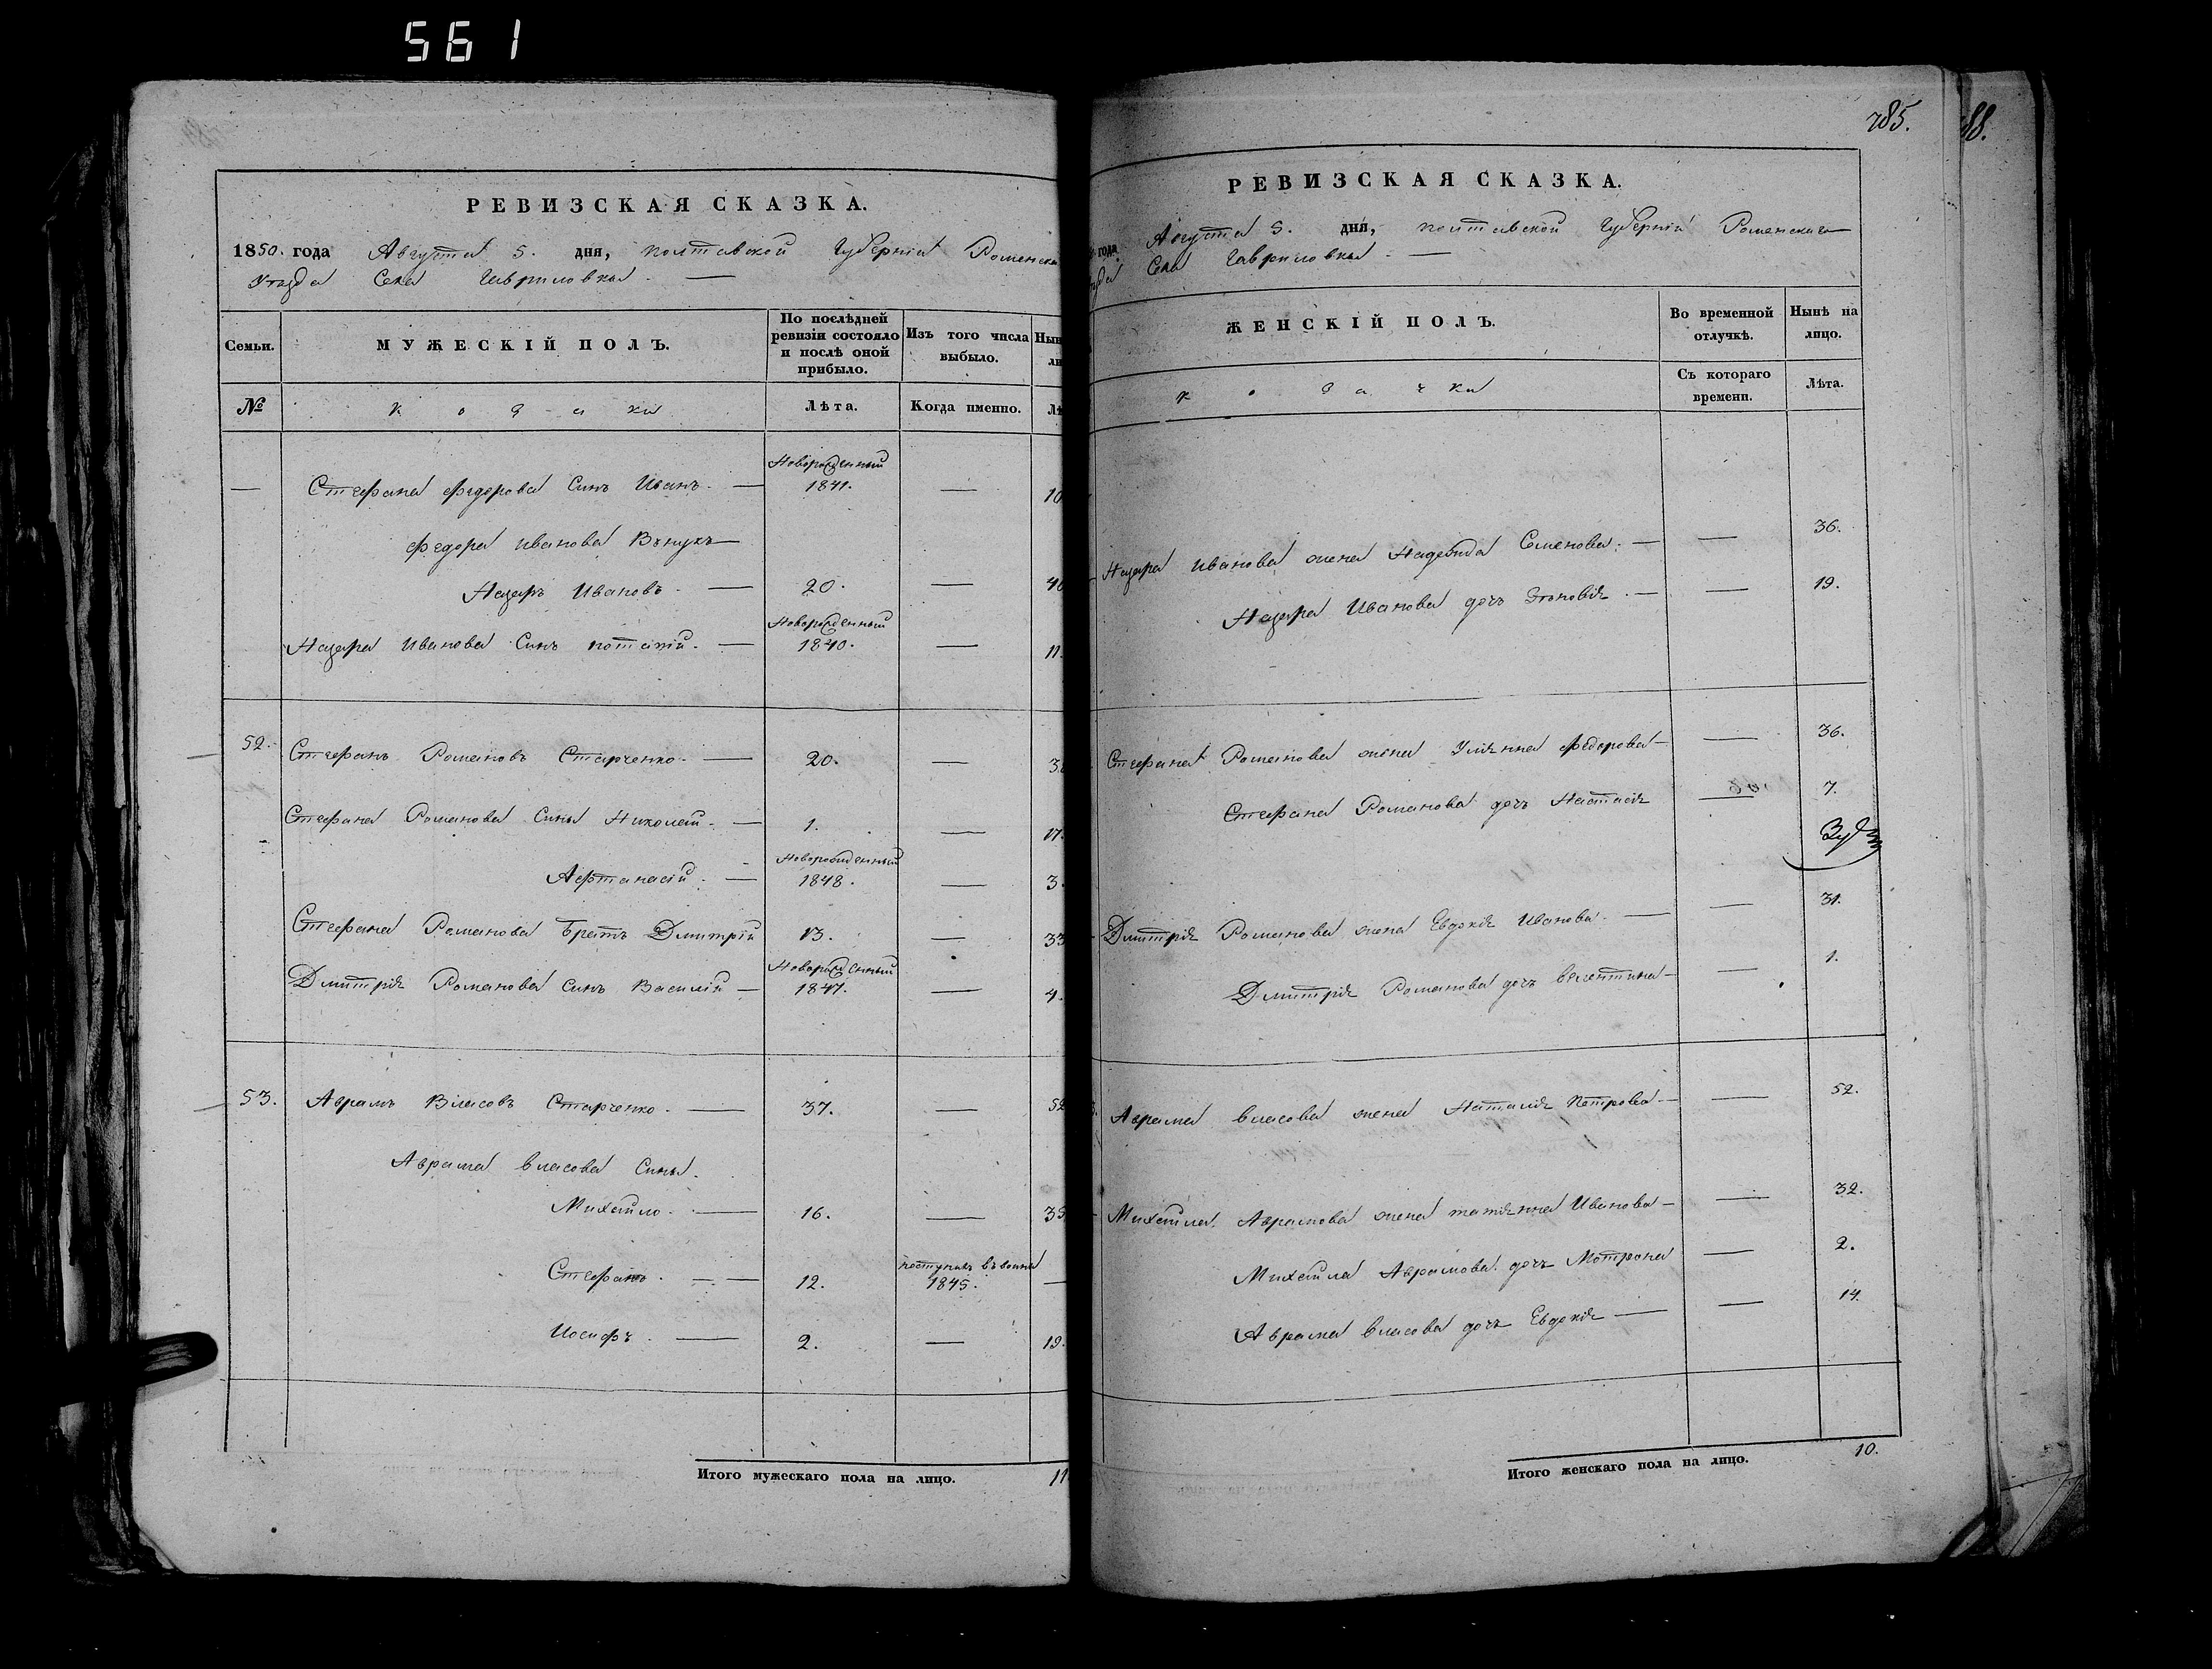 561
РЕВИЗСКАЯ СКАЗКА.
1850. года Августа 5. дня, полтавской Губерніи Роменска
Уезда Села Гавриловки. —
Семьи.
МУЖЕСКІЙ ПОЛЪ.
По послѣдней
ревизіи состояло
и послѣ оной
прибыло.
Изъ того числа
выбыло.
Нын
ли
№
козаки
Лѣта.
Когда именно.
Лѣ
— Стефана Федорова Сынъ Иванъ. — Новорожденный 1841. — 10
Федора Иванова Внукъ
Назаръ Ивановъ. — 20. — 40
Назара Иванова Сынъ потапій. — Новорожденный 1840. — 11.
52. Стефанъ Романовъ Старченко. — 20. — 3
Стефана Романова Сыны Николай. — 1. — 17.
Афтанасій. — Новорожденный 1848. — 3.
Стефана Романова Братъ Дмитрій 13. — 33
Дмитрія Романова сынъ Василій — Новорожденный 1847. — 4.
53. Аврамъ Власовъ Старченко. — 37. — 52
Аврама власова Сыны.
Михайло. — 16. — 35
Стефанъ. — 12. 1845. —
Иосифъ. — 2. — 19.
Итого мужескаго пола на лицо. 11
785.
88.
РЕВИЗСКАЯ СКАЗКА.
года Августа 5. дня, полтавской Губерніи Роменскаго
Села Гавриловки. —
ЖЕНСКІЙ ПОЛЪ.
Во временной
отлучкѣ.
Нынѣ на
лицо.
козачки
Съ котораго
времени.
Лѣта.
Назара иванова жена Надежда Семенова. — — 36.
Назара Иванова дочъ Зѣновія. — — 19.
Стефана Романова жена Уліянна Федорова — — 36.
Стефана Романова дочъ Настасія — 7.
Дмитрія Романова жена Евдокія Иванова. — — 31.
Дмитрія Романова дочъ валентина — — 1.
Аврама власова жена Наталія Петрова — — 52.
Михайла Аврамова жена татіянна Иванова — — 32.
Михайла Аврамова дочъ Мотрона — 2.
Аврама власова дочъ Евдокія — — 14.
Итого женскаго пола на лицо. 10.